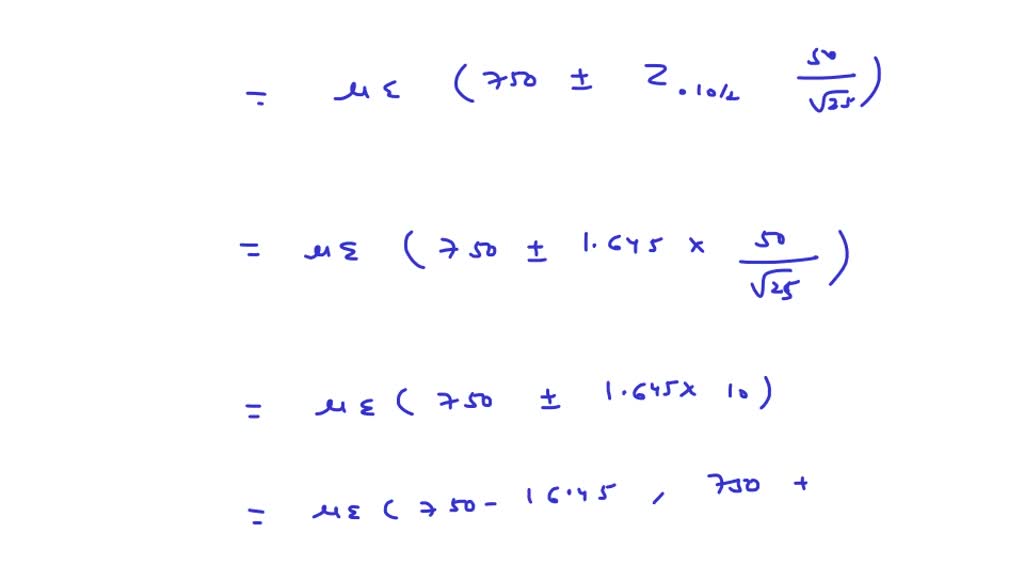 = μ ε (750 ± Z.10/2 50/√25)
= μ ε (750 ± 1.645 × 50/√25)
= μ ε (750 ± 1.645 × 10)
= μ ε (750 - 16.45 , 750 +